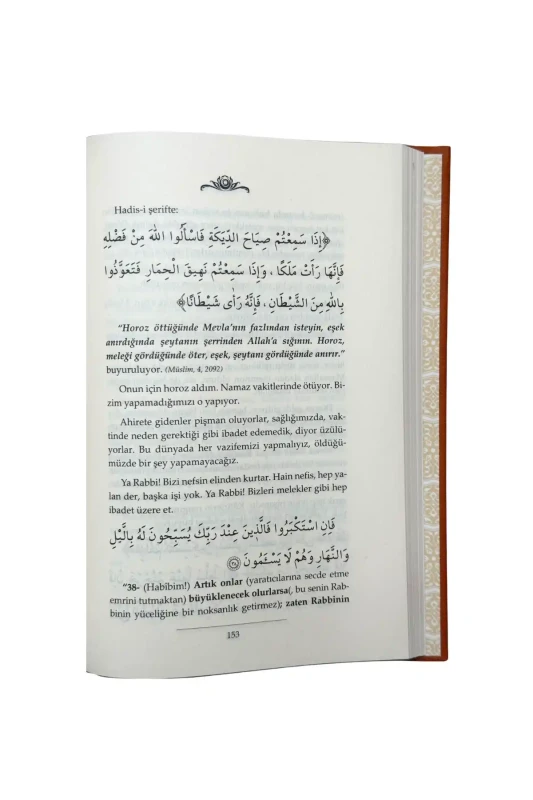 Hadis-i şerifte:
﴿إِذَا سَمِعْتُمْ صِيَاحَ الدِّيَكَةِ فَاسْأَلُوا اللّٰهَ مِنْ فَضْلِهِ
فَإِنَّهَا رَأَتْ مَلَكًا ، وَإِذَا سَمِعْتُمْ نَهِيقَ الْحِمَارِ فَتَعَوَّذُوا
بِاللّٰهِ مِنَ الشَّيْطَانِ ، فَإِنَّهُ رَأٰى شَيْطَانًا﴾
“Horoz öttüğünde Mevla’nın fazlından isteyin, eşek
anırdığında şeytanın şerrinden Allah’a sığının. Horoz,
meleği gördüğünde öter, eşek, şeytanı gördüğünde anırır.”
buyuruluyor. (Müslim, 4, 2092)
Onun için horoz aldım. Namaz vakitlerinde ötüyor. Bi-
zim yapamadığımızı o yapıyor.
Ahirete gidenler pişman oluyorlar, sağlığımızda, vak-
tinde neden gerektiği gibi ibadet edemedik, diyor üzülü-
yorlar. Bu dünyada her vazifemizi yapmalıyız, öldüğü-
müzde bir şey yapamayacağız.
Ya Rabbi! Bizi nefsin elinden kurtar. Hain nefis, hep ya-
lan der, başka işi yok. Ya Rabbi! Bizleri melekler gibi hep
ibadet üzere et.
فَإِنِ اسْتَكْبَرُوا فَالَّذِينَ عِنْدَ رَبِّكَ يُسَبِّحُونَ لَهُ بِالَّيْلِ
وَالنَّهَارِ وَهُمْ لَا يَسْـَٔمُونَ ﴿٣٨﴾
“38- (Habîbim!) Artık onlar (yaratıcılarına secde etme
emrini tutmaktan) büyüklenecek olurlarsa(, bu senin Rab-
binin yüceliğine bir noksanlık getirmez); zaten Rabbinin
153